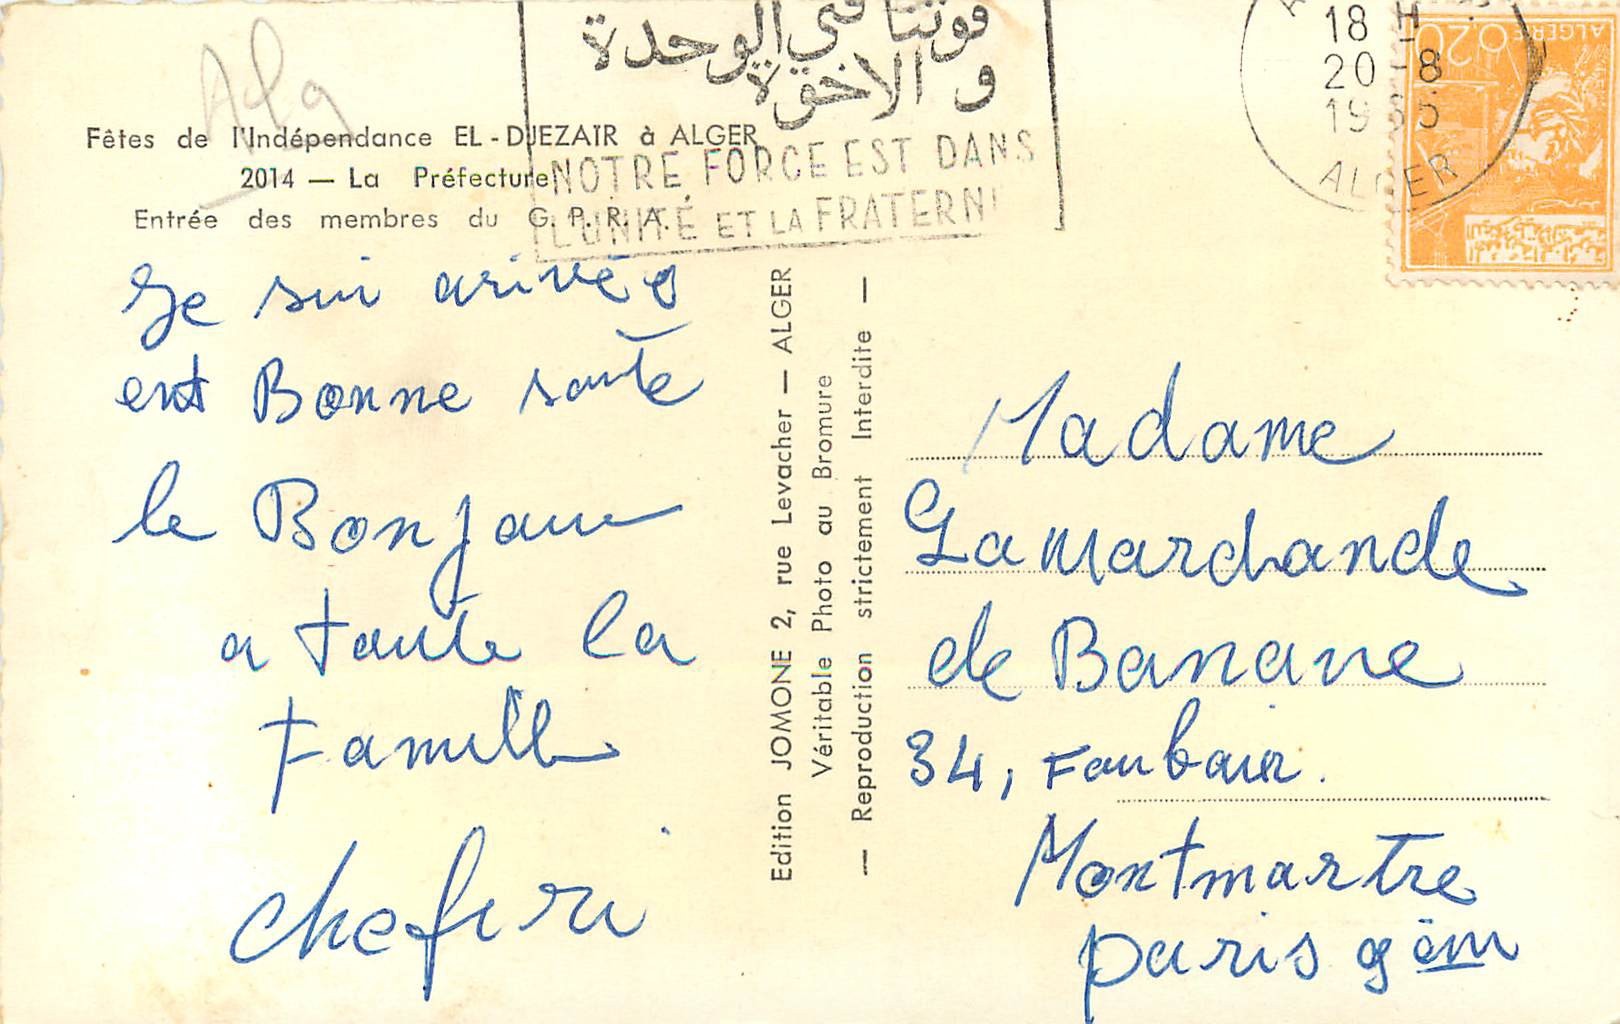 Alg
Fêtes de l'Indépendance EL-DJEZAIR à ALGER
2014 — La Préfecture
Entrée des membres du G. P. R. A.
قوتنا في الوحدة
و الاخوة
NOTRE FORCE EST DANS
L'UNITÉ ET LA FRATERNI
18 H
20-8
1965
ALGER
ALGERIE
0,20
Je sui arivée
ent Bonne sante
le Bonjour
a toute la
Famille
cheferi
Edition JOMONE 2, rue Levacher — ALGER
Véritable Photo au Bromure
— Reproduction strictement Interdite —
Madame
La Marchande
de Banane
34, Faubour.
Montmartre
paris 9 èm